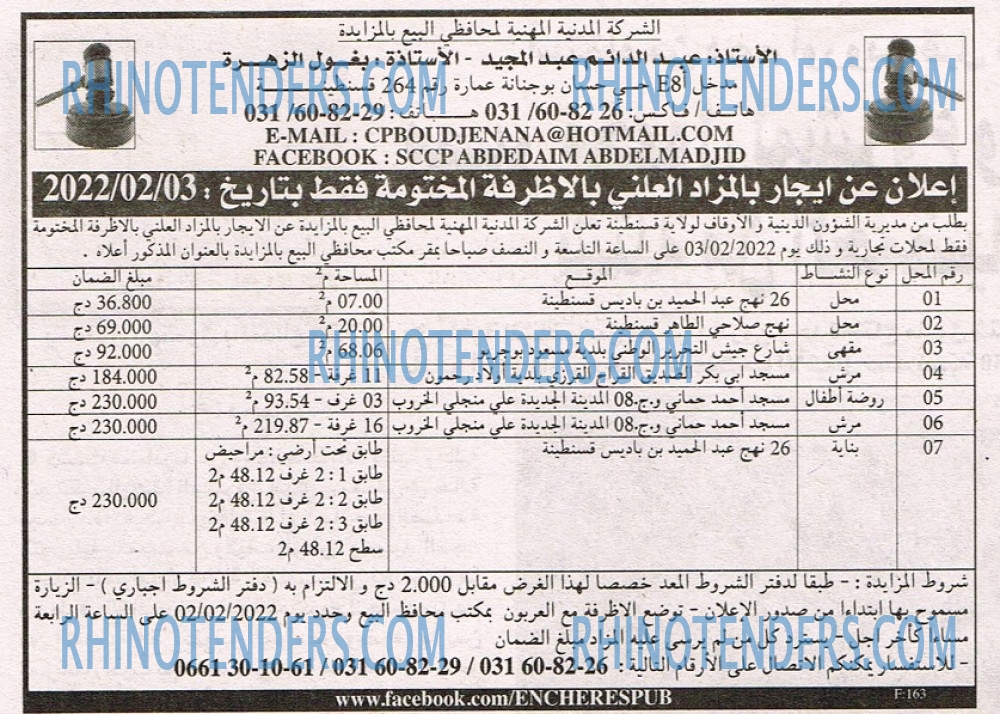 الشركة المدنية المهنية لمحافظي البيع بالمزايدة
الأستاذ: عبد الدائم عبد المجيد - الأستاذة: بغول الزهرة
مدخل E8 حي حسان بوجنانة عمارة رقم 264 قسنطينة
هاتف/ فاكس: 26 82-60/ 031 هاتف: 29-82-60/ 031
E-MAIL : CPBOUDJENANA@HOTMAIL.COM
FACEBOOK : SCCP ABDEDAIM ABDELMADJID
إعلان عن ايجار بالمزاد العلني بالاظرفة المختومة فقط بتاريخ : 2022/02/03
بطلب من مديرية الشؤون الدينية و الأوقاف لولاية قسنطينة تعلن الشركة المدنية المهنية لمحافظي البيع بالمزايدة عن الايجار بالمزاد العلني بالأظرفة المختومة
فقط لمحلات تجارية و ذلك يوم 03/02/2022 على الساعة التاسعة و النصف صباحا بمقر مكتب محافظي البيع بالمزايدة بالعنوان المذكور أعلاه .
رقم المحل نوع النشاط الموقع المساحة م2 مبلغ الضمان
01 محل 26 نهج عبد الحميد بن باديس قسنطينة 07.00 م2 36.800 دج
02 محل نهج صلاحي الطاهر قسنطينة 20.00 م2 69.000 دج
03 مقهى شارع جيش التحرير الوطني بلدية مسعود بوجريو 68.06 م2 92.000 دج
04 مرش مسجد ابي بكر الصديق القراح القرزي بلدية أولاد رحمون 11 غرفة - 82.58 م2 184.000 دج
05 روضة أطفال مسجد أحمد حماني و.ج.08 المدينة الجديدة علي منجلي الخروب 03 غرف - 93.54 م2 230.000 دج
06 مرش مسجد أحمد حماني و.ج.08 المدينة الجديدة علي منجلي الخروب 16 غرفة - 219.87 م2 230.000 دج
07 بناية 26 نهج عبد الحميد بن باديس قسنطينة طابق تحت أرضي : مراحيض
طابق 1 : 2 غرف 48.12 م2
طابق 2 : 2 غرف 48.12 م2 230.000 دج
طابق 3 : 2 غرف 48.12 م2
سطح 48.12 م2
شروط المزايدة : - طبقا لدفتر الشروط المعد خصصا لهذا الغرض مقابل 2.000 دج و الالتزام به ( دفتر الشروط اجباري ) - الزيارة
مسموح بها ابتداءا من صدور الاعلان - توضع الاظرفة مع العربون بمكتب محافظ البيع وحدد يوم 02/02/2022 على الساعة الرابعة
مساءا كآخر اجل - يسترد كل من لم يرسى عليه المزاد مبلغ الضمان
- للاستفسار يمكنكم الاتصال على الأرقام التالية : 26-82-60 031 / 29-82-60 031 / 61-10-30 0661
www.facebook.com/ENCHERESPUB
F:163
RHINOTENDERS.COM
RHINOTENDERS.COM
RHINOTENDERS.COM
RHINOTENDERS.COM
RHINOTENDERS.COM